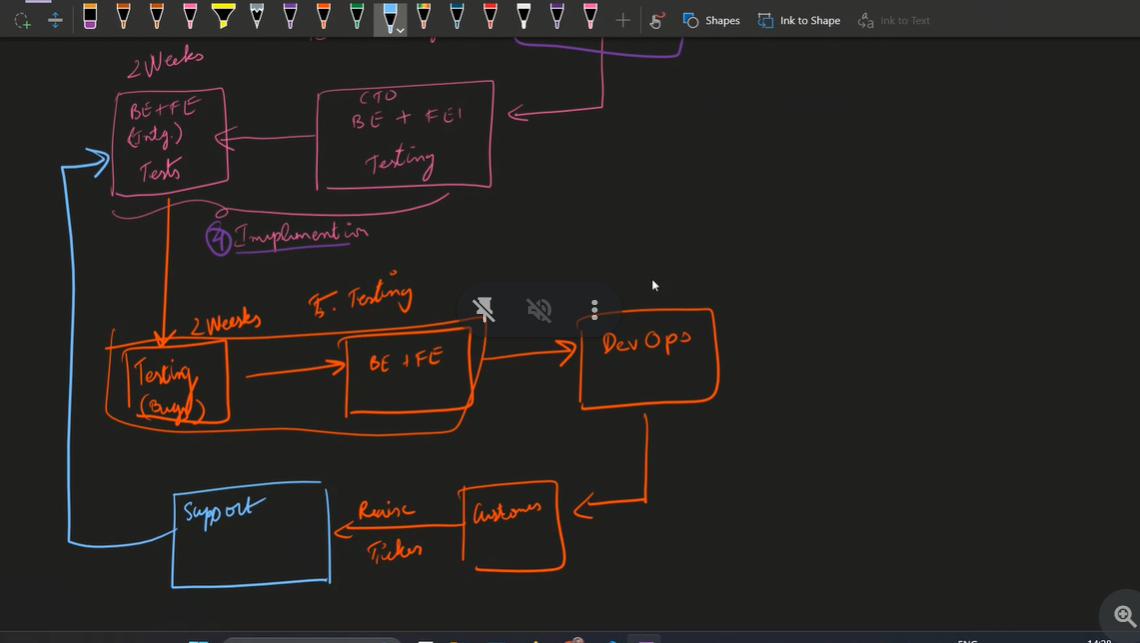 Shapes
Ink to Shape
Ink to Text
2 Weeks
BE+FE
(Intg.)
Tests
CTO
BE + FE
Testing
4
Implementation
5. Testing
2 Weeks
Testing
(Bugs)
BE + FE
DevOps
Support
Raise
Ticket
Customer
ENG
14:28